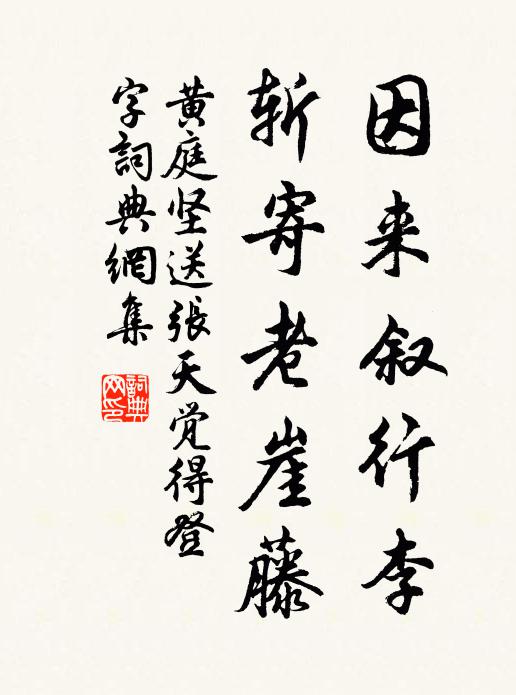 因来叙行李
斩寄老崖藤
黄庭坚送張天觉得登
字詞典網集
詞典
网印